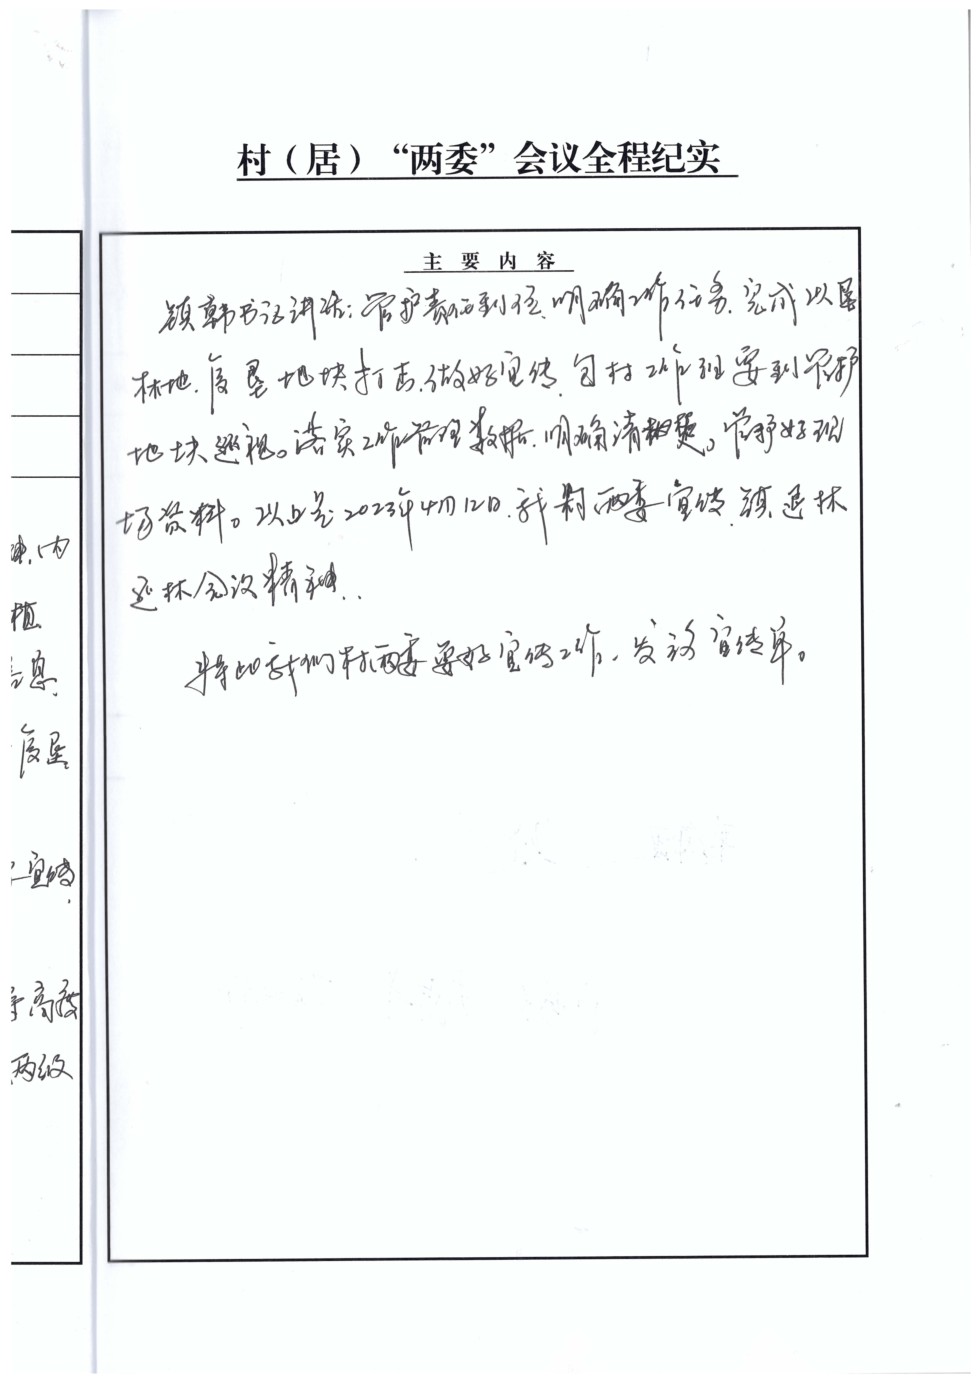 村（居）“两委”会议全程纪实
主要内容
镇韩书记讲话：管护责任到位、明确工作任务、完成以垦
林地、复垦地块打击、做好宣传、包村工作班要到管护
地块巡视。落实工作管理数据、明确清楚。管护好现
场资料。以上是2023年4月12日、我村两委宣传、镇退林
还林会议精神..
特此我们村两委要好宣传工作、发放宣传单。
内
植
息
复垦
宣传，
高度
两级